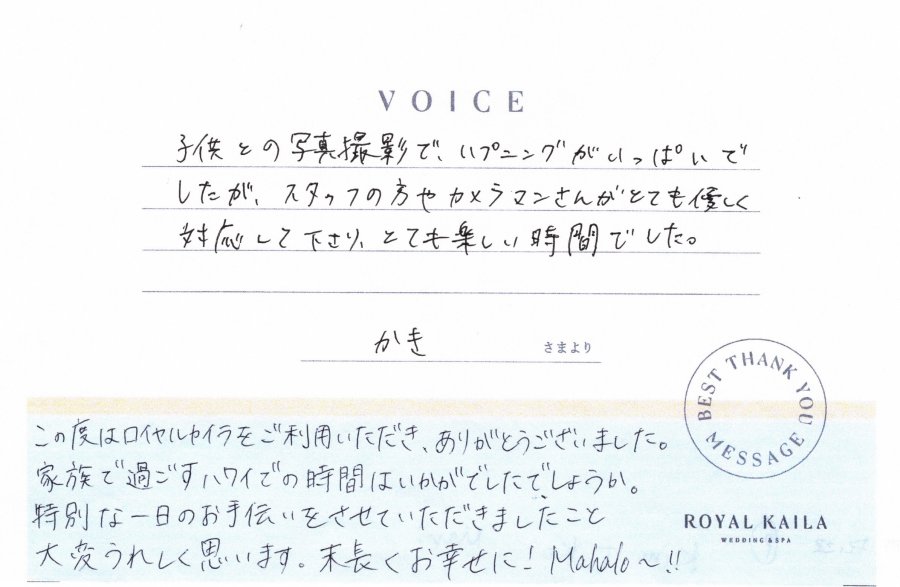 VOICE
子供との写真撮影で、ハプニングがいっぱいで
したが、スタッフの方やカメラマンさんがとても優しく
対応して下さり、とても楽しい時間でした。
かき さまより
BEST THANK YOU MESSAGE
この度はロイヤルカイラをご利用いただき、ありがとうございました。
家族で過ごすハワイでの時間はいかがでしたでしょうか。
特別な一日のお手伝いをさせていただきましたこと
大変うれしく思います。末長くお幸せに！Mahalo〜!!
ROYAL KAILA
WEDDING & SPA